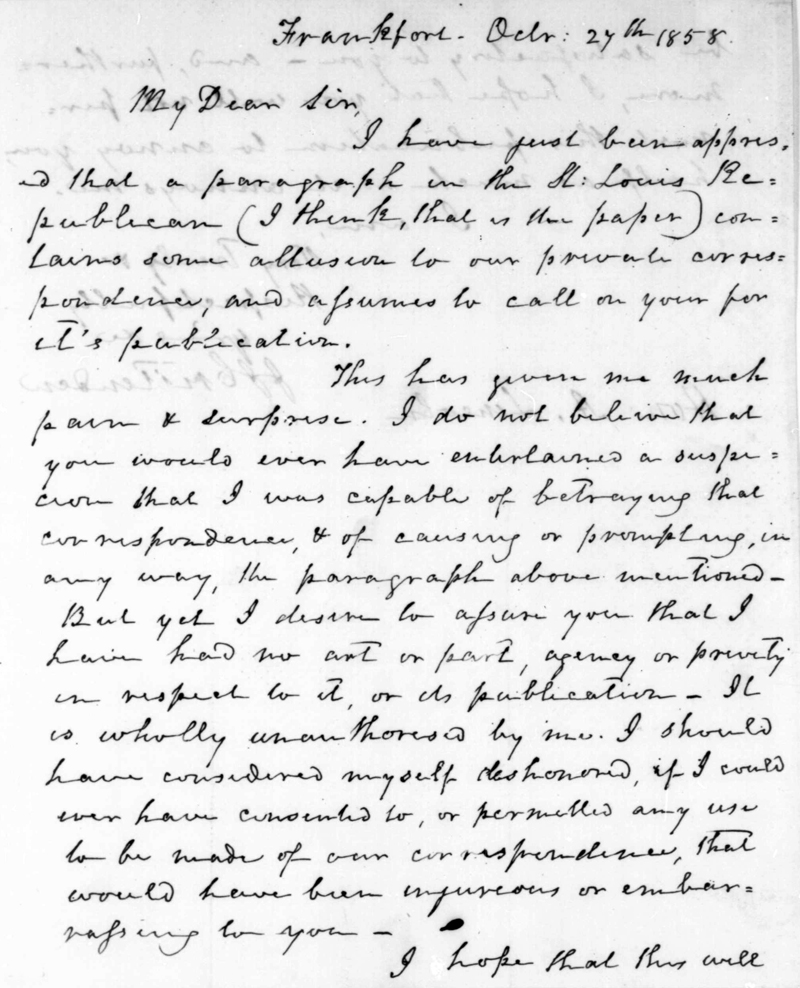 Frankfort - Octr: 27th 1858
My Dear Sir,
I have just been appris=
ed that a paragraph in the St: Louis Re=
publican (I think, that is the paper) con=
tains some allusion to our private corres=
pondence, and assumes to call on your for
it's publication.
This has given me much
pain & surprise. I do not believe that
you would ever have entertained a suspi=
cion that I was capable of betraying that
correspondence, & of causing or prompting, in
any way, the paragraph above mentioned -
But yet I desire to assure you that I
have had no art or part, agency or privity
in respect to it, or its publication - It
is wholly unauthorised by me. I should
have considered myself dishonored, if I could
ever have consented to, or permitted any use
to be made of our correspondence, that
would have been injureous or embar=
rassing to you -
I hope that this will